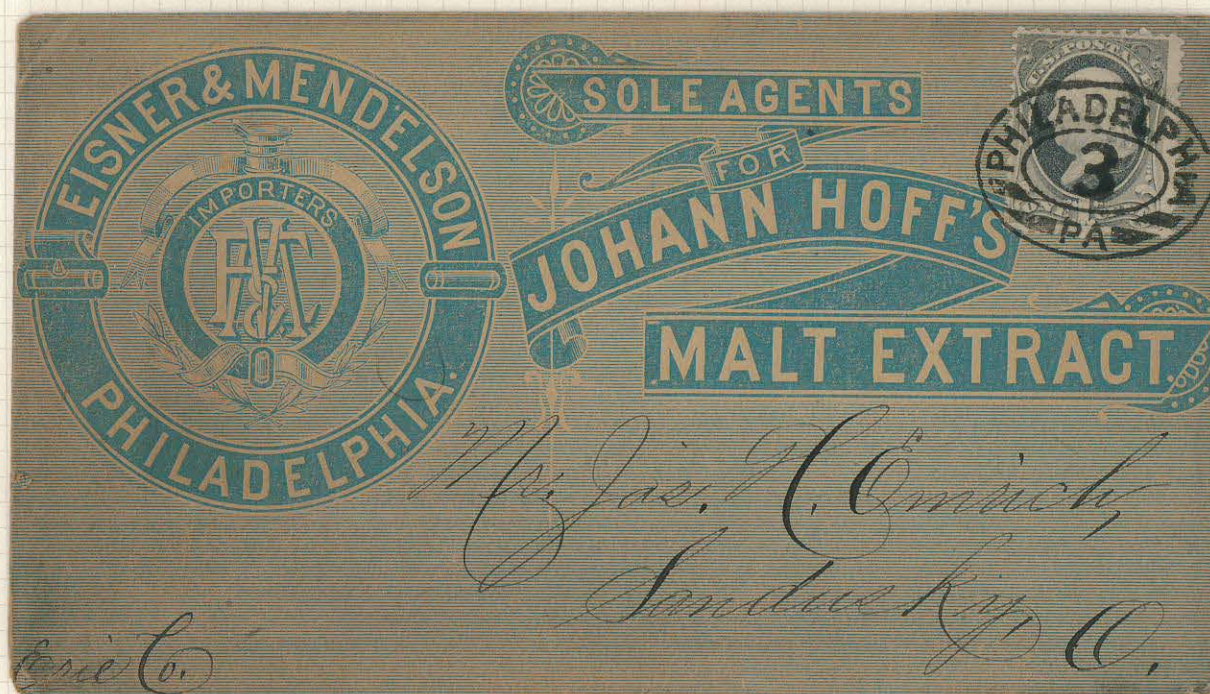 EISNER & MENDELSON
IMPORTERS
PHILADELPHIA.
SOLE AGENTS
FOR
JOHANN HOFF'S
MALT EXTRACT.
U.S. POSTAGE
PHILADELPHIA
3
PA
Mr. Jas. H. Emrich,
Sandusky, O.
Erie Co.